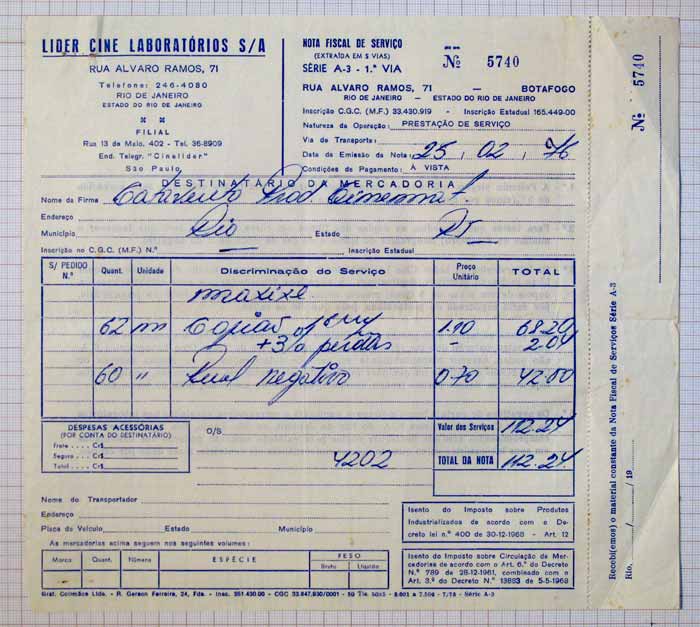 LIDER CINE LABORATÓRIOS S/A
RUA ALVARO RAMOS, 71
Telefone: 246-4080
RIO DE JANEIRO
ESTADO DO RIO DE JANEIRO
FILIAL
Rua 13 de Maio, 402 - Tel. 36-8909
End. Telegr. "Cinelider"
São Paulo
NOTA FISCAL DE SERVIÇO
(EXTRAÍDA EM 5 VIAS)
SÉRIE A-3 - 1.ª VIA
Nº 5740
RUA ALVARO RAMOS, 71 — BOTAFOGO
RIO DE JANEIRO — ESTADO DO RIO DE JANEIRO
Inscrição C.G.C. (M.F.) 33.430.919 - Inscrição Estadual 165.449-00
Natureza da Operação: PRESTAÇÃO DE SERVIÇO
Via de Transporte:
Data da Emissão da Nota: 25 / 02 / 76
Condições de Pagamento: À VISTA
DESTINATÁRIO DA MERCADORIA
Nome da Firma Catavento Prod.
Endereço
Município Rio Estado RJ
Inscrição no C.G.C. (M.F.) N.º — Inscrição Estadual —
S/ PEDIDO N.º Quant. Unidade Discriminação do Serviço Preço Unitário TOTAL
maxixe
62 m Copião 1.10 68.20
+3% perdas - 2.04
60 " negativo 0.70 42.00
DESPESAS ACESSÓRIAS
(POR CONTA DO DESTINATÁRIO)
Frete .... Cr$
Seguro ... Cr$
Total .... Cr$
O/S 4202
Valor dos Serviços 112.24
TOTAL DA NOTA 112.24
Nome do Transportador
Endereço
Placa do Veículo Estado Município
As mercadorias acima seguem nos seguintes volumes:
Marca Quant. Número ESPÉCIE PESO
Bruto Líquido
Isento do Imposto sobre Produtos
Industrializados de acordo com o De-
creto lei n.º 400 de 30-12-1968 - Art. 12
Isento do Imposto sobre Circulação de Mer-
cadorias de acordo com o Art. 6.º do Decreto
N.º 789 de 28-12-1961, combinado com o
Art. 3.º do Decreto N.º 13883 de 5-5-1968
Graf. Coimãos Ltda. - R. Gerson Ferreira, 24, Fds. - Insc. 351.430.00 - CGC 33.847.930/0001 - 50 Tls. 5x25 - 5.001 a 7.500 - 7/75 - Série A-3
Nº 5740
Recebi(emos) o material constante da Nota Fiscal de Serviços Série A-3
Rio, / / 19